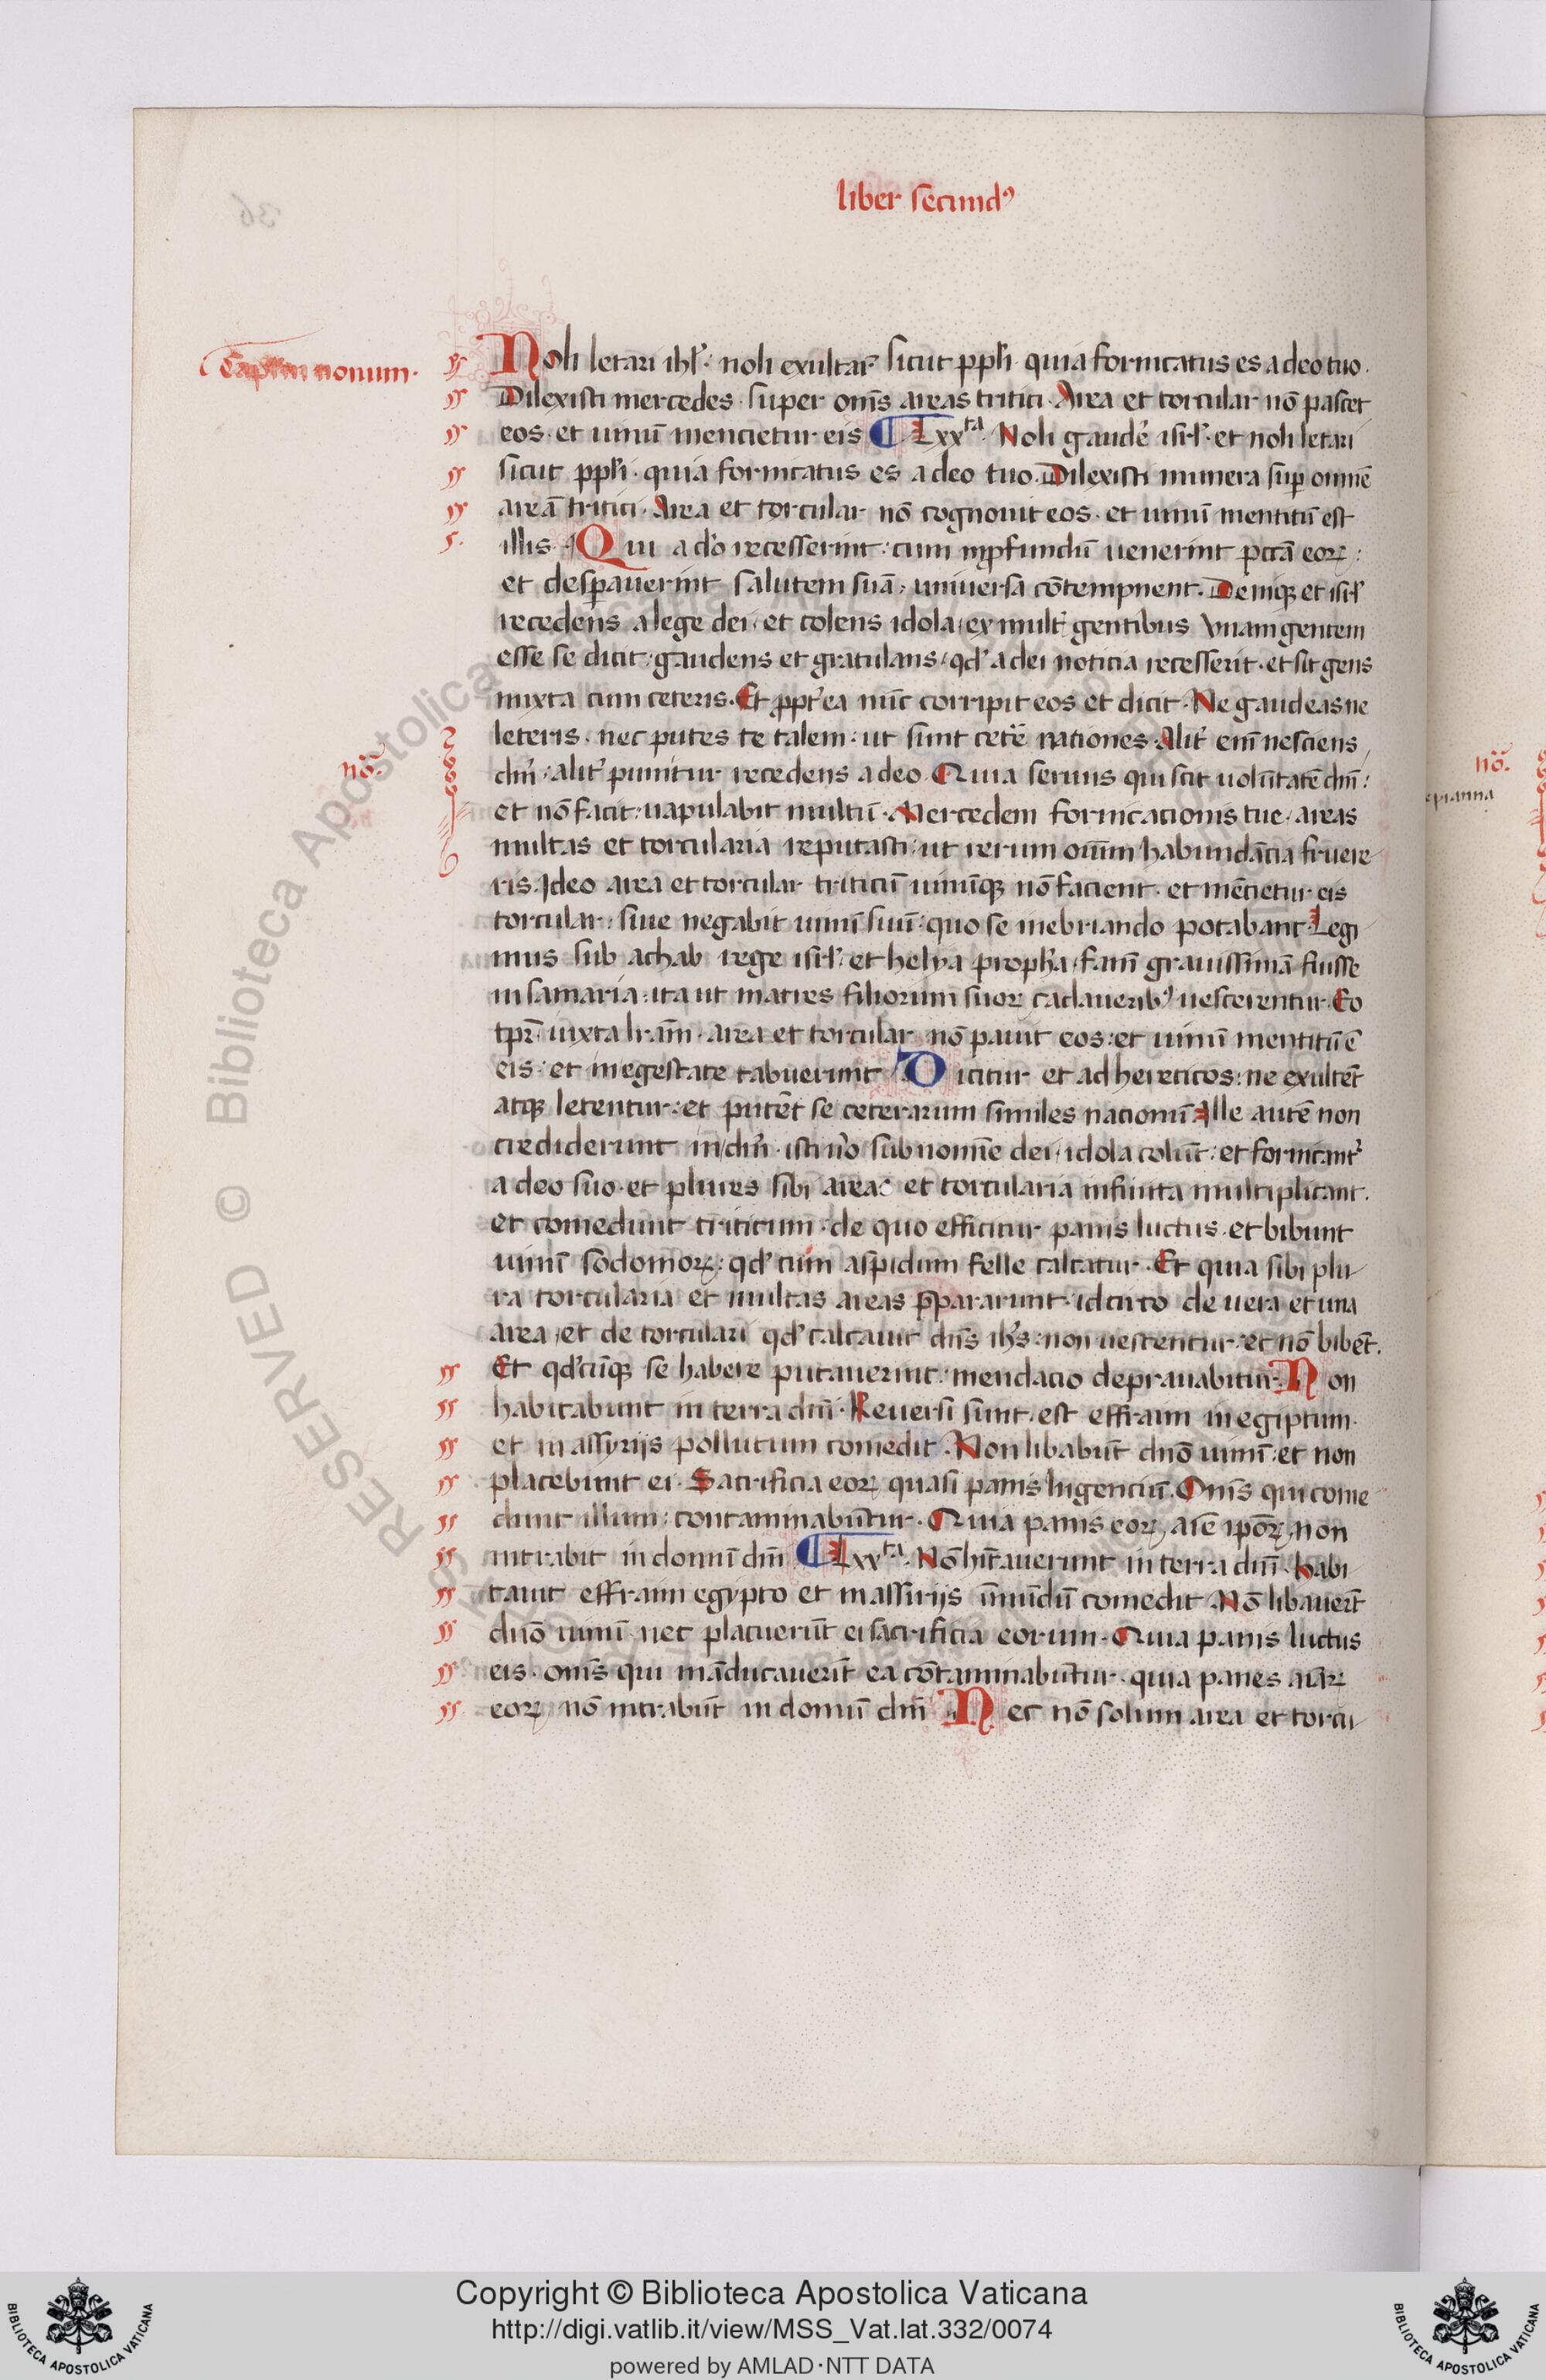 liber secundꝰ
Capłm nonum.
Noli letari ihł. noli exultar̉ sicut ppłi. quia fornicatus es a deo tuo.
Dilexisti mercedes. super om̄s areas tritici. Area et torcular nō pascet
eos. et uinū mencietur eis. Lxxᵗᵃ. Noli gaudē isrł. et noli letari
sicut ppłi. quia fornicatus es a deo tuo. Dilexisti munera suꝑ omnē
areā tritici. Area et torcular nō cognouit eos. et uinū mentitū est
illis. Qui a do recesserint: cum in ꝓfundū uenerint pctā eoꝝ:
et desꝑauerint salutem suā: uniuersa cōtempnent. Deniqꝫ et isrł
recedens a lege dei. et colens idola. ex mult̉ gentibus vnam gentem
esse se dicit. gaudens et gratulans. qd̕ a dei noticia recesserit. et sit gens
mixta cum ceteris. Et ꝓpt̉ea nūc corripit eos et dicit. Ne gaudeas ne
leteris. nec putes te talem: ut sunt ceterē nationes. Alit̉ em̄ nesciens
nō.
dm̄: alit̉ punitur recedens a deo. Quia seruus qui scit uolūtatē dm̄:
et nō facit: uapulabit multū. Mercedem fornicationis tue. areas
multas et torcularia reputasti. ut rerum omīm habundācia fruere
ris. Ideo area et torcular triticū uinūqꝫ nō facient. et mēcietur eis
torcular. siue negabit uinū suū. quo se inebriando potabant. Legi
mus sub achab rege isrł. et helya prophā. famē grauissimā fuisse
in samaria. ita ut matres filiorum suoꝝ cadaueribꝰ uescerentur. Eo
tpr̄. iuxta lr̄am. area et torcular nō pauit eos: et uinū mentitū ē
eis: et in egestate tabuerunt. Dicitur et ad hereticos: ne exultēt
atqꝫ letentur: et putēt se ceterarum similes nationū. Ille autē non
crediderunt in dm̄. isti ūo sub nomīe dei. idola colūt: et fornicant̉
a deo suo. et plures sibi areas et torcularia infinita multiplicant.
et comedunt triticum. de quo efficitur panis luctus. et bibunt
uinū sodomoꝝ: qd̕ cum aspidum felle calcatur. Et quia sibi plu
ra torcularia et multas areas p̄pararunt. idcirco de uera et una
area. et de torculari qd̕ calcauit dn̄s ih̄s: non uescentur. et nō bibēt.
Et qd̕cūqꝫ se habere putauerint. mendacio deprauabitur. Non
habitabunt in terra dm̄. Reuersi sunt. est effraim in egiptum.
et in assyrijs pollutum comedit. Non libabūt dn̄o uinū: et non
placebunt ei. Sacrificia eoꝝ quasi panis lugenciū. Om̄s qui come
dunt illum: contaminabūtur. Quia panis eoꝝ, aīe ipōꝝ, non
intrabit in domū dm̄. Lxxᵗᵃ. Nō hīt̄auerunt in terra dm̄. Habi
tauit effraim egypto et in assirijs īmūdū comedit. Nō libauerūt
dn̄o uinū. nec placuerūt ei sacrificia eorum. Quia panis luctus
eis. om̄s qui māducauerīt ea cōtaminabūtur. quia panes aīaꝝ
eoꝝ, nō intrabūt in domū dm̄. Nec nō solum area et torcu
Copyright © Biblioteca Apostolica Vaticana
http://digi.vatlib.it/view/MSS_Vat.lat.332/0074
powered by AMLAD·NTT DATA